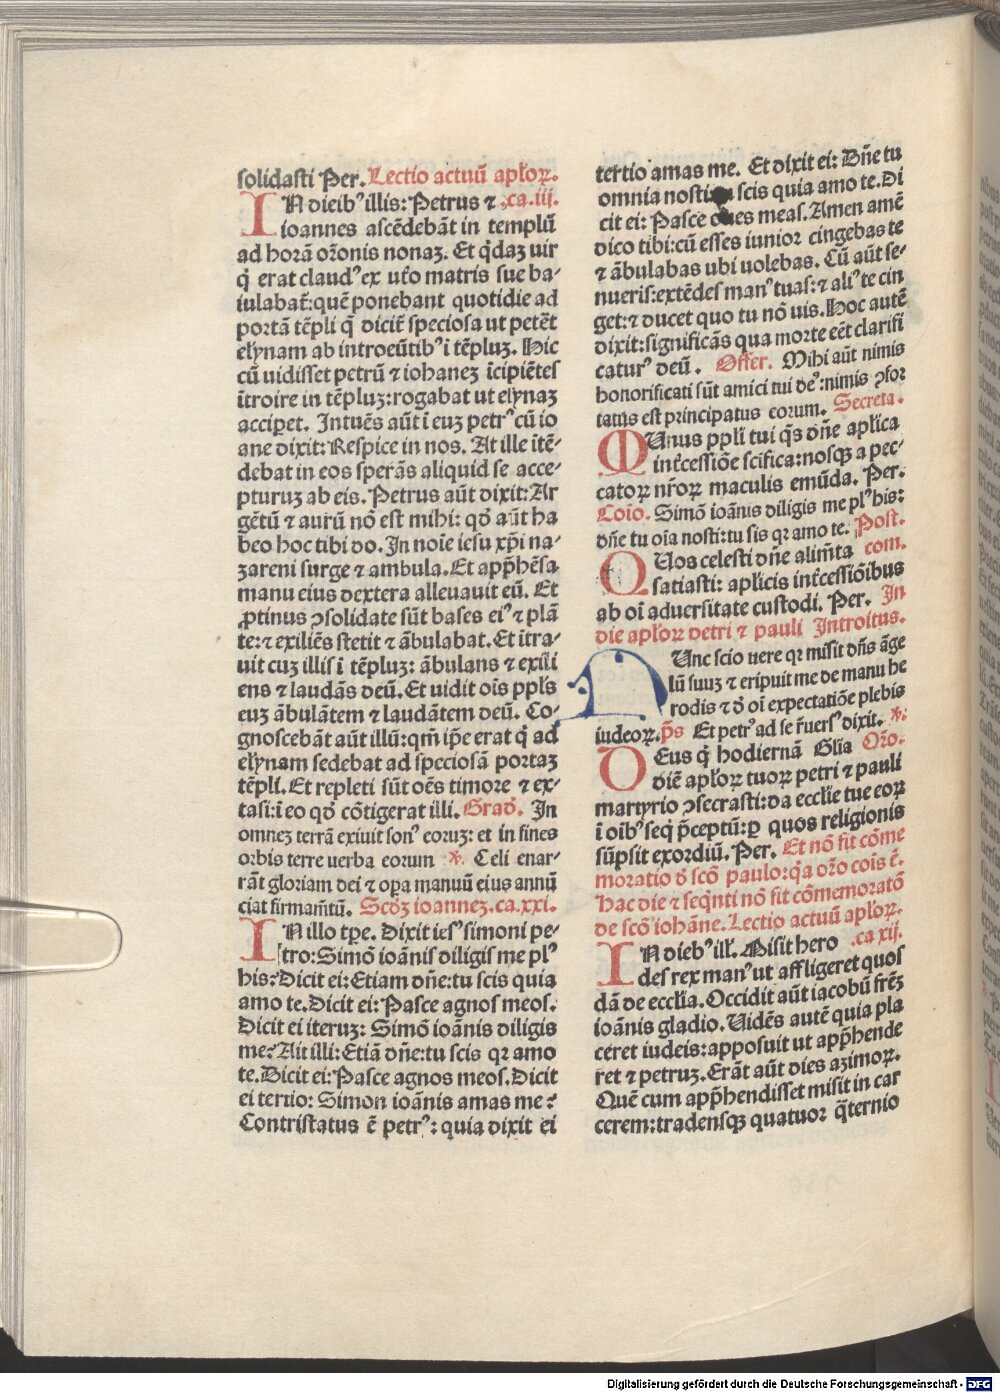 solidasti Per. Lectio actuū apłoꝝ.
IN dieb᾽ illis: Petrus ⁊ .ca.iij.
ioannes ascēdebāt in templū
ad horā orōnis nonaꝫ. Et q̇daꝫ uir
q̇ erat claud᾽ ex ut̄o matris sue ba-
iulabat̄: quē ponebant quotidie ad
portā tēpli q̄ dicit̄ speciosa ut petēt
elynam ab introeūtib᾽ ī tēpluꝫ. Hic
cū uidisset petrū ⁊ iohaneꝫ īcipiētes
ītroire in tēpluꝫ: rogabat ut elynaꝫ
acciperet. Intuēs aūt ī euꝫ petr᾽ cū io
ane dixit: Respice in nos. At ille itē-
debat in eos sperās aliquid se acce-
pturuꝫ ab eis. Petrus aūt dixit: Ar
gētū ⁊ aurū nō est mihi: qd̄ aūt ha
beo hoc tibi do. In noīe iesu xp̄i na-
zareni surge ⁊ ambula. Et app̄hēsa
manu eius dextera alleuauit eū. Et
ꝓtinus ꝯsolidate sūt bases ei᾽ ⁊ plā
te: ⁊ exiliēs stetit ⁊ ābulabat. Et ītra-
uit cuꝫ illis ī tēpluꝫ: ābulans ⁊ exili
ens ⁊ laudās deū. Et uidit oīs ppl̄s
euꝫ ābulātem ⁊ laudātem deū. Co-
gnoscebāt aūt illū: qm̄ ip̄e erat q̇ ad
elynam sedebat ad speciosā portaꝫ
tēpli. Et repleti sūt oēs timore ⁊ ex-
tasi: ī eo qd̄ cōtigerat illi. Grad̄. In
omneꝫ terrā exiuit son᾽ eoruꝫ: et in fines
orbis terre uerba eorum ℣. Celi enar-
rāt gloriam dei ⁊ oꝑa manuū eius annū
ciat firmam̄tū. Scd̄ꝫ ioanneꝫ.ca.xxi.
IN illo tꝑe. Dixit ies᾽ simoni pe-
tro: Simō ioānis diligis me pl᾽
his? Dicit ei: Etiam dn̄e: tu scis quia
amo te. Dicit ei: Pasce agnos meos.
Dicit ei iteruꝫ: Simō ioānis diligis
me? Ait illi: Etiā dn̄e: tu scis qꝛ amo
te. Dicit ei: Pasce agnos meos. Dicit
ei tertio: Simon ioānis amas me?
Contristatus ē petr᾽: quia dixit ei
tertio amas me. Et dixit ei: Dn̄e tu
omnia nosti: scis quia amo te. Di
cit ei: Pasce oues meas. Amen amē
dico tibi: cū esses iunior cingebas te
⁊ ābulabas ubi uolebas. Cū aūt se-
nueris: extēdes man᾽ tuas: ⁊ ali᾽ te cin
get: ⁊ ducet quo tu nō uis. Hoc autē
dixit: significās qua morte eēt clarifi
catur᾽ deū. Offer. Mihi aūt nimis
honorificati sūt amici tui de᾽: nimis ꝯfor
tatus est principatus eorum. Secreta.
MUnus ppl̄i tui q̄s dn̄e apl̄ica
int̄cessiōe sc̄ifica: nosqꝫ a pec-
catoꝝ nr̄oꝝ maculis emūda. Per.
Coīo. Simō ioānis diligis me pl᾽ his:
dn̄e tu oīa nosti: tu sis qꝛ amo te. Post.
QUos celesti dn̄e alim̄ta com.
satiasti: apl̄icis int̄cessiōibus
ab oī aduersitate custodi. Per. In
die apłoꝝ petri ⁊ pauli Introitus.
NUnc scio uere qꝛ misit dn̄s āge
lū suuꝫ ⁊ eripuit me de manu he
rodis ⁊ d̄ oī expectatiōe plebis
iudeoꝝ. p̄s Et petr᾽ ad se r̄uers᾽ dixit. ℣.
DEus q̇ hodiernā Glīa Orō.
diē apłoꝝ tuoꝝ petri ⁊ pauli
martyrio ꝯsecrasti: da eccl̄ie tue eoꝝ
ī oīb᾽ seq̇ p̄ceptū: ꝑ quos religionis
sūpsit exordiū. Per. Et nō fit cōme
moratio d̄ scō paulo: q̇a orō cois ē.
hac die ⁊ seq̄nti nō fit cōmemoratō
de scō iohāne. Lectio actuū apłoꝝ.
IN dieb᾽ ill̄. Misit hero .ca xij.
des rex man᾽ ut affligeret quos
dā de eccl̄ia. Occidit aūt iacobū fr̄eꝫ
ioānis gladio. Uidēs autē quia pla
ceret iudeis: apposuit ut app̄hende
ret ⁊ petruꝫ. Erāt aūt dies azimoꝝ.
Quē cum app̄hendisset misit in car
cerem: tradensqꝫ quatuor q̄ternio
Digitalisierung gefördert durch die Deutsche Forschungsgemeinschaft - DFG